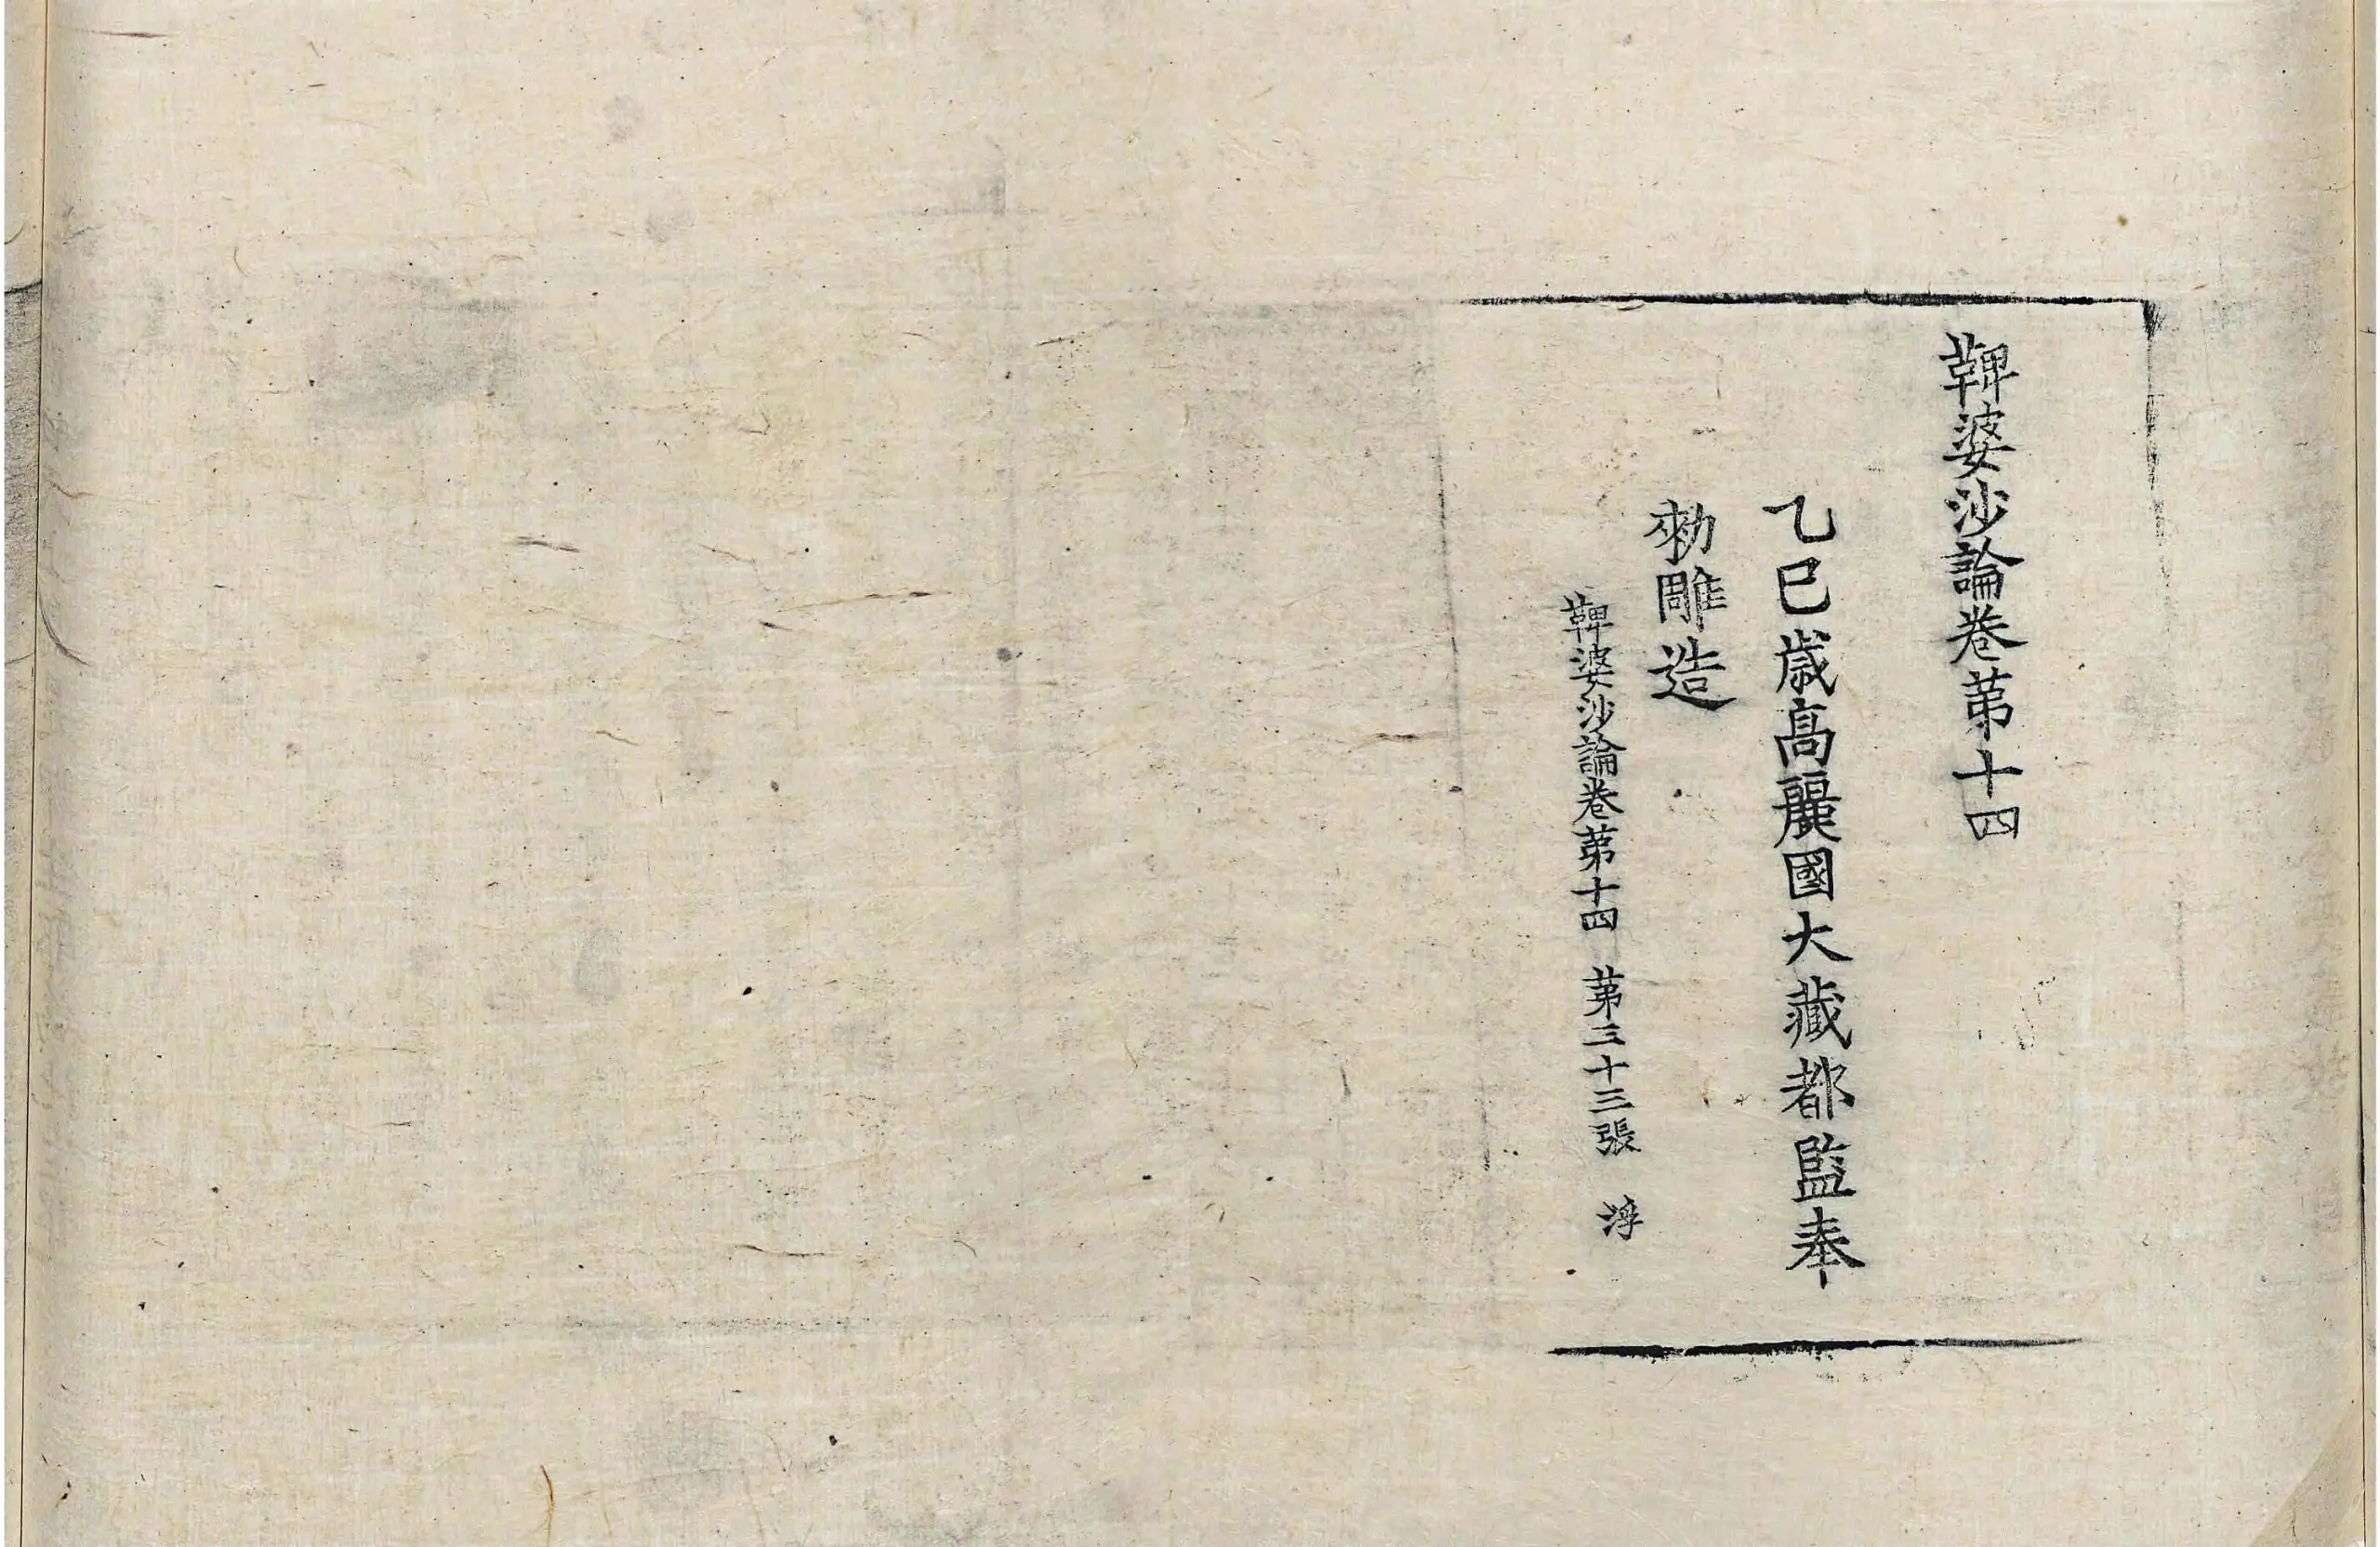 鞞婆沙論卷第十四
乙巳歳高麗國大藏都監奉
勑雕造
鞞婆沙論卷第十四 第三十三張 浮